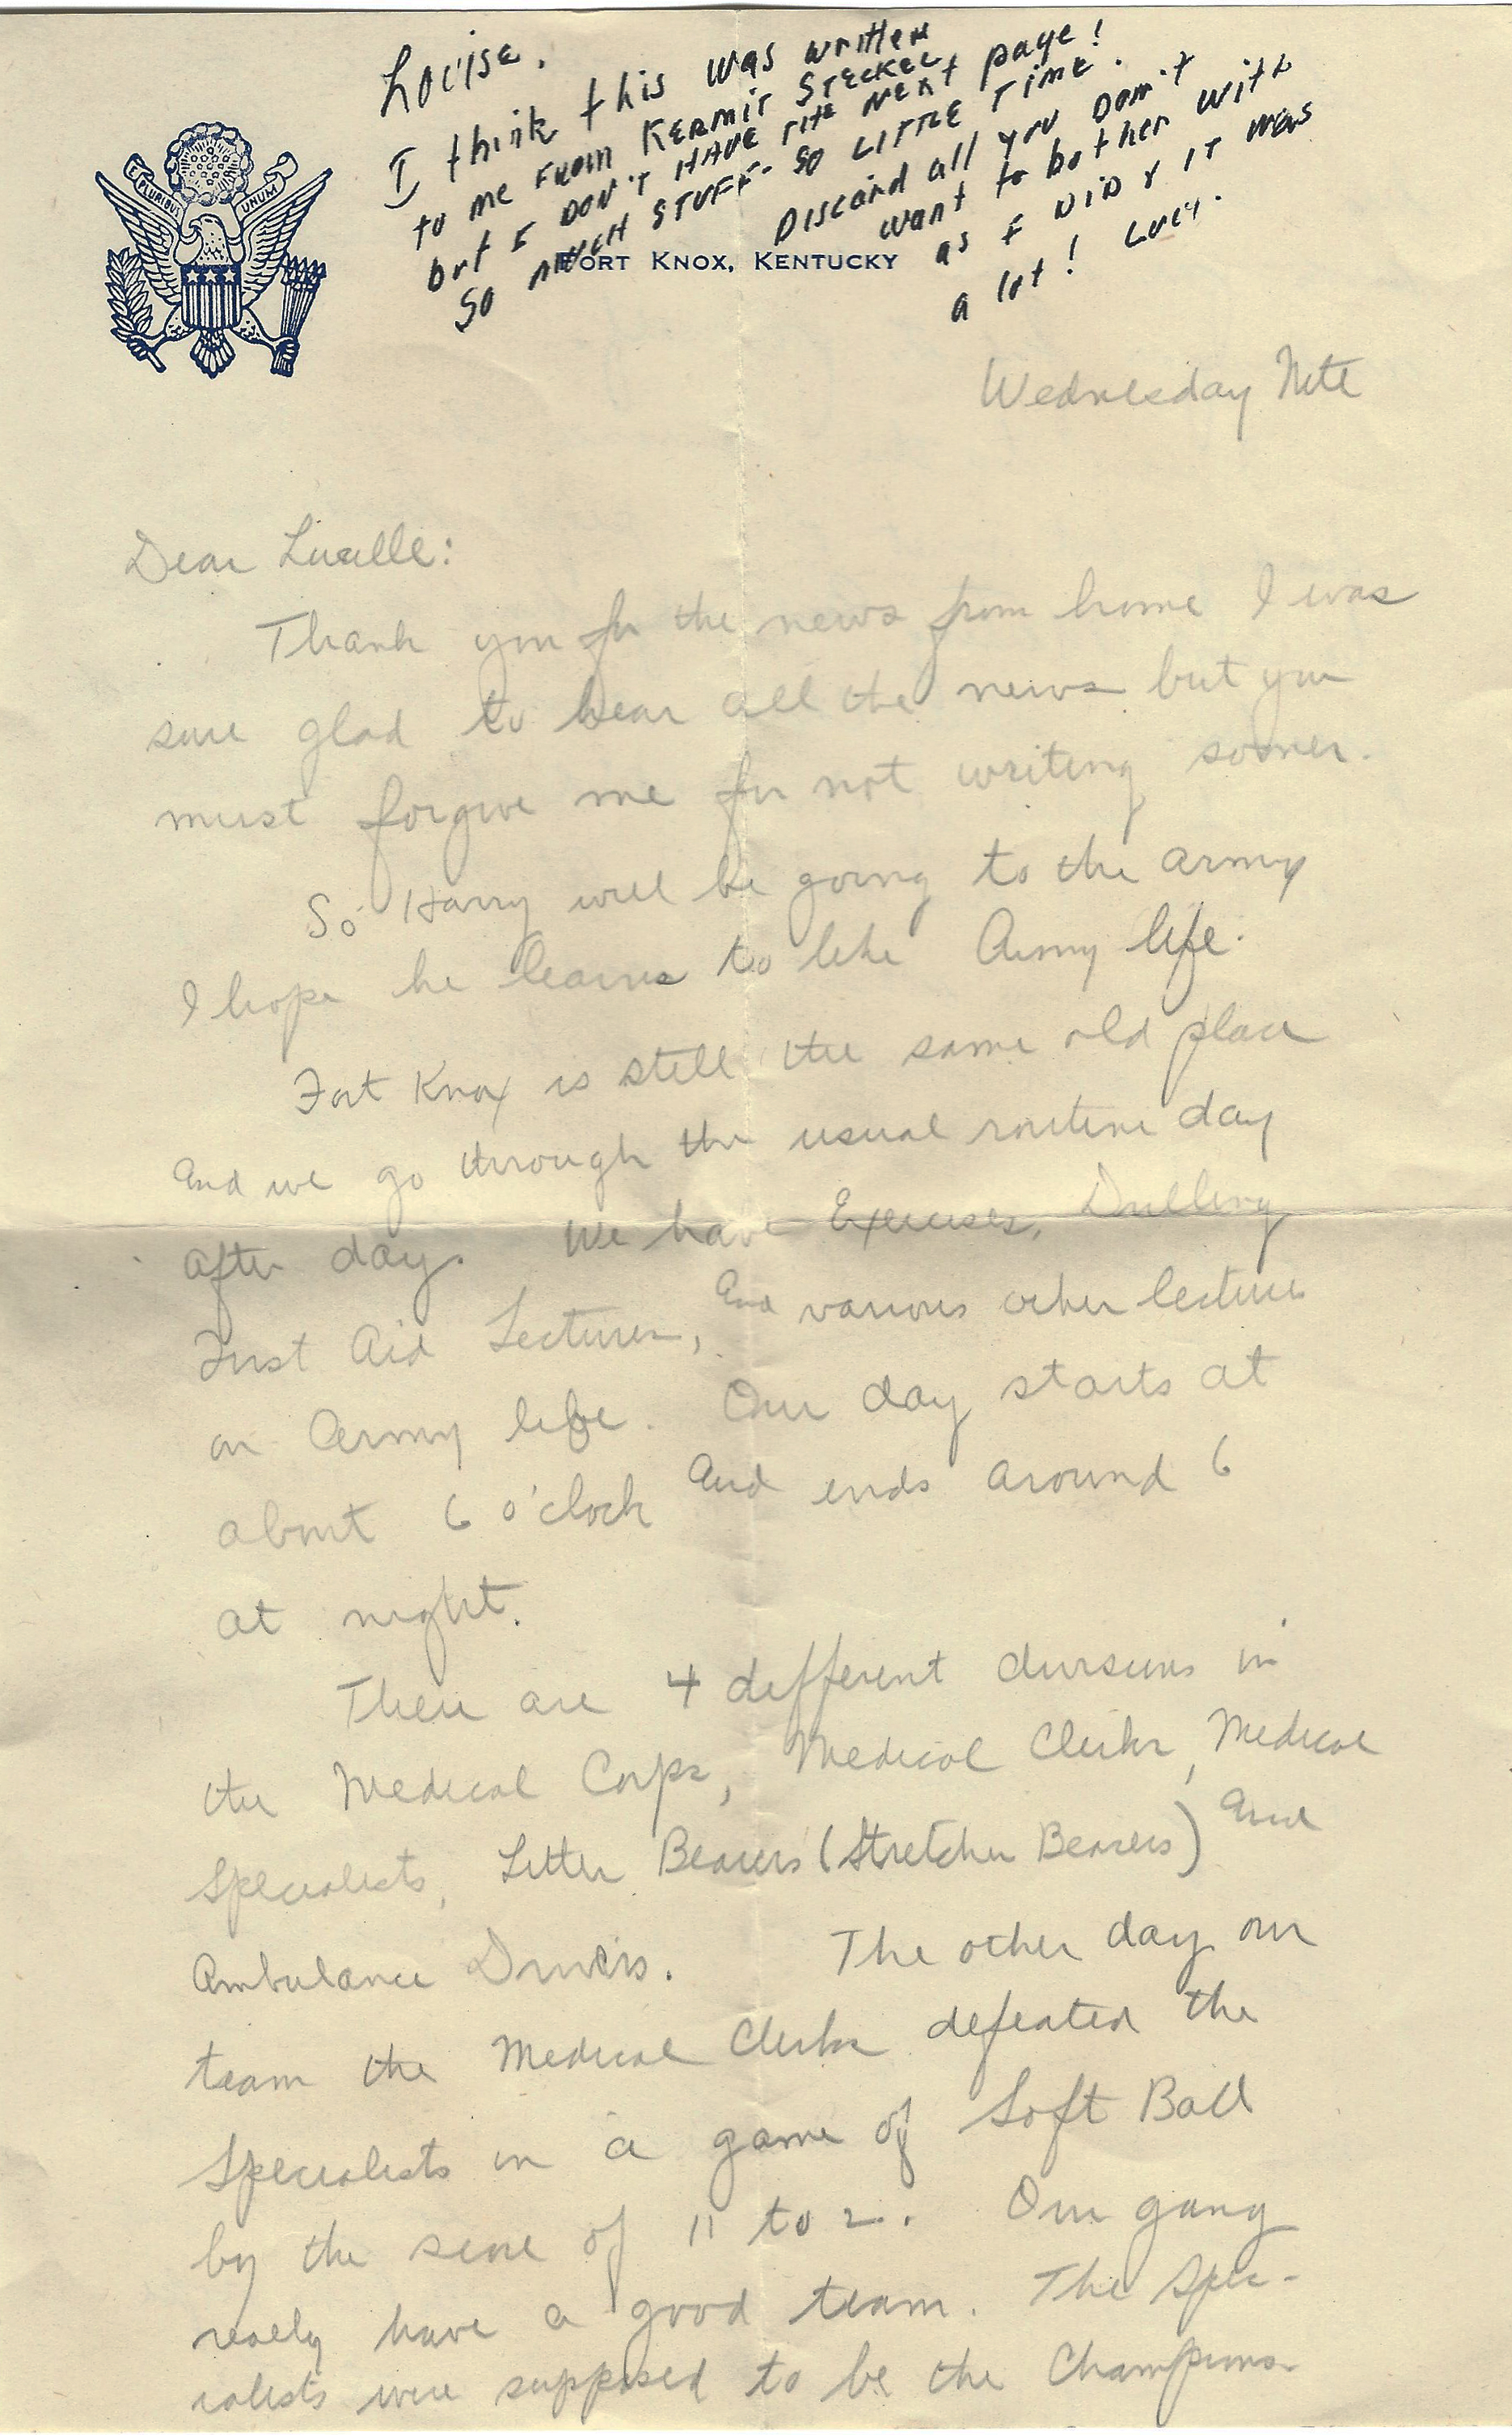 Louise.
I think this was written
to me from KERMIT STECKEL
but I DON'T HAVE THE NEXT page!
SO MUCH STUFF- SO LITTLE TIME.
Discard all you don't
want to bother with
as I DID & IT WAS
a lot! Lucy.
PLURIBUS UNUM
FORT KNOX, KENTUCKY
Wednesday Nite
Dear Lucille:
Thank you for the news from home I was
sure glad to hear all the news but you
must forgive me for not writing sooner.
So Harry will be going to the army
I hope he learns to like Army life.
Fort Knox is still the same old place
And we go through the usual routine day
after day. We have Exercises, Drilling
First Aid Lectures, And various other lectures
on Army life. Our day starts at
about 6 o'clock And ends around 6
at night.
There are 4 different divisions in
the Medical Corps, Medical Clerks, Medical
Specialists, Litter Bearers (Stretcher Bearers) And
Ambulance Drivers. The other day our
team the Medical Clerks defeated the
Specialists in a game of Soft Ball
by the score of 11 to 2. Our gang
really have a good team. The Spec-
ialists were supposed to be the Champions-